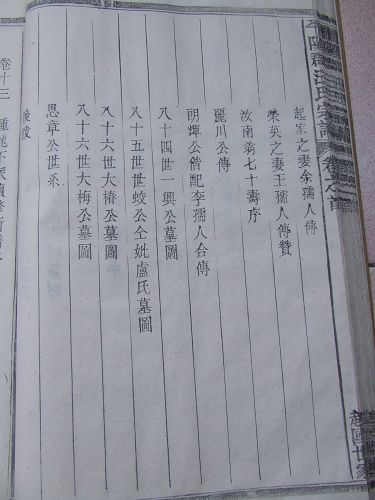 平陽郡汪氏宗譜 卷之首
越國世家
起家之妻余孺人傳
榮英之妻王孺人傳贊
汝南翁七十壽序
麗川公傳
朗輝公偕配李孺人合傳
八十四世一興公墓圖
八十五世世蛟公仝妣盧氏墓圖
八十六世大椿公墓圖
八十六世大梅公墓圖
思章公世系
卷十三